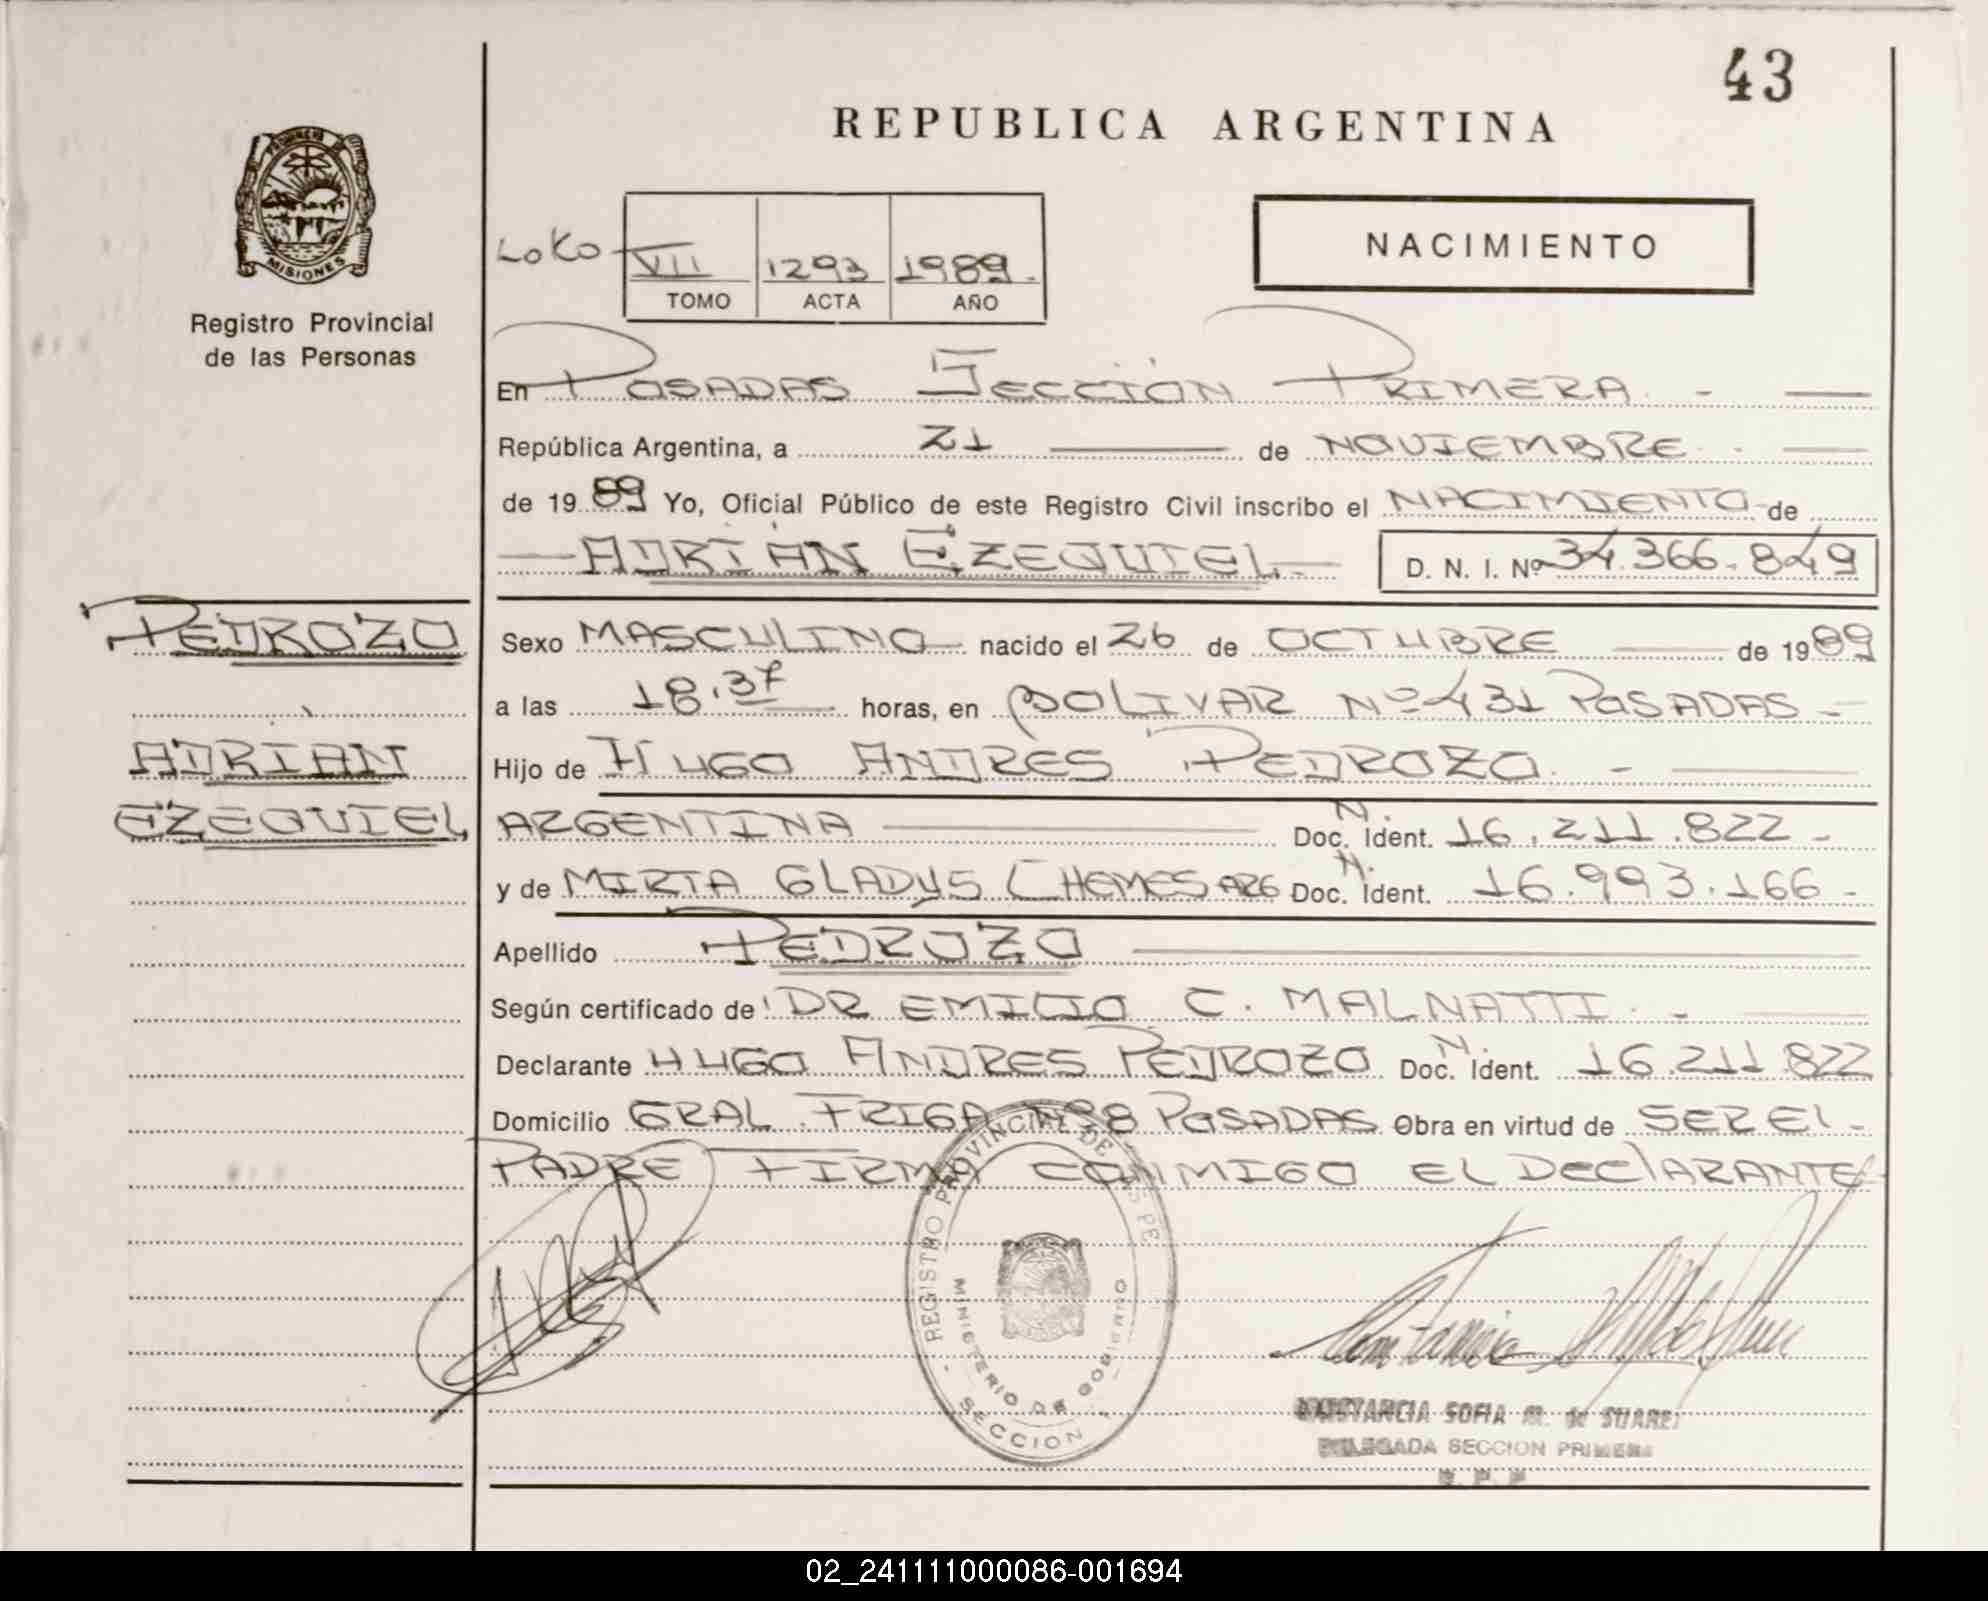 43
REPUBLICA ARGENTINA
PROVINCIA
MISIONES
Registro Provincial
de las Personas
LOKO
VII 1293 1989.
TOMO ACTA AÑO
NACIMIENTO
En POSADAS SECCIÓN PRIMERA. -
República Argentina, a 21 de NOVIEMBRE.
de 1989 Yo, Oficial Público de este Registro Civil inscribo el NACIMIENTO de
ADRIÁN EZEQUIEL
D. N. I. Nº 34.366.849
PEDROZO
ADRIÁN
EZEQUIEL
Sexo MASCULINO nacido el 26 de OCTUBRE de 1989
a las 18.37 horas, en BOLIVAR Nº 431 POSADAS -
Hijo de HUGO ANDRES PEDROZO. -
ARGENTINA Doc. N. Ident. 16.211.822 -
y de MIRTA GLADYS CHEMES ARG Doc. N. Ident. 16.993.166 -
Apellido PEDROZO
Según certificado de DR EMILIO C. MALNATTI. -
Declarante HUGO ANDRES PEDROZO Doc. N. Ident. 16.211.822
Domicilio GRAL. 88 POSADAS Obra en virtud de SER EL -
PADRE FIRMA CONMIGO EL DECLARANTE
REGISTRO PROVINCIAL DE LAS PE
MINISTERIO DE GOBIERNO
SECCION
CONSTANCIA SOFIA M. de SUAREZ
DELEGADA SECCION PRIMERA
R. P. P.
02_241111000086-001694